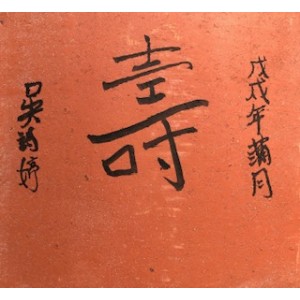 戊戌年蒲月
壽
吳韵婷